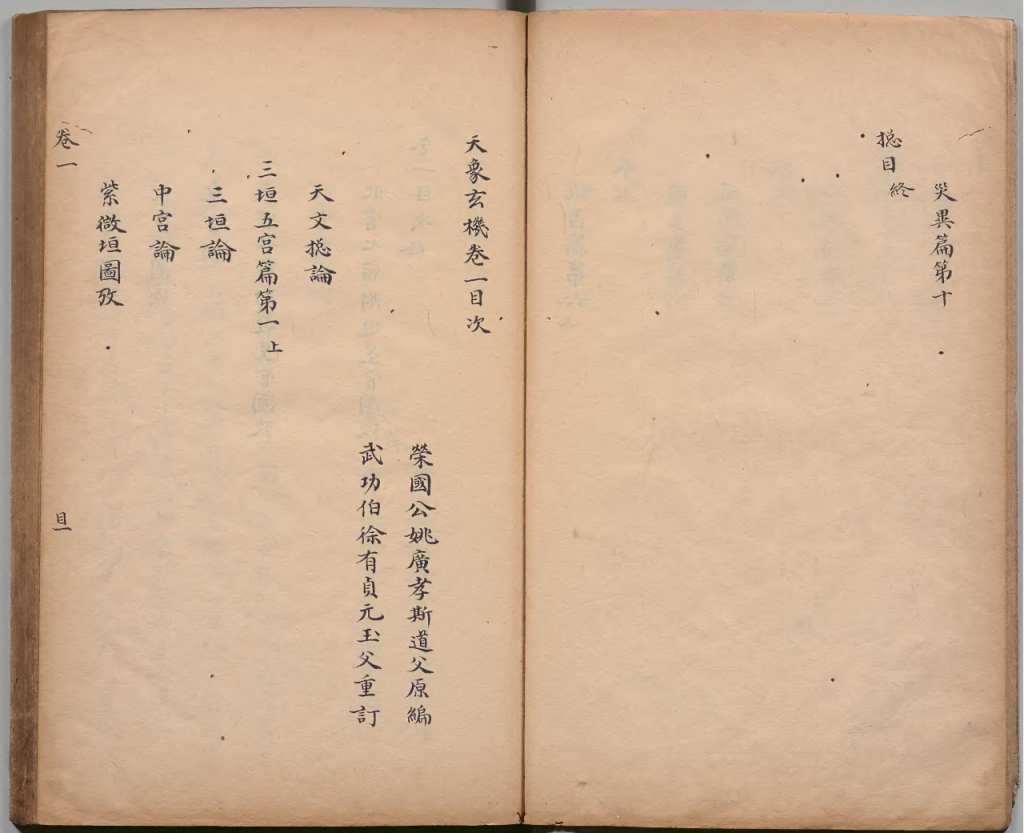 災異篇第十
捴目終
天象玄機卷一目次
榮國公姚廣孝斯道父原編
武功伯徐有貞元玉父重訂
天文捴論
三垣五宫篇第一上
三垣論
中宮論
紫微垣圖攷
卷一
目一